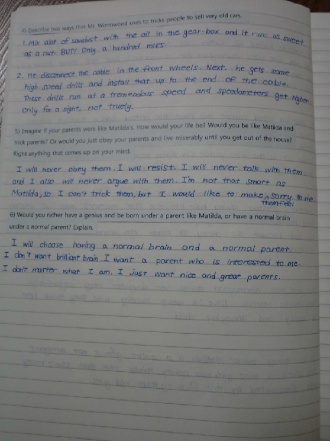 4) Describe two ways that Mr Wormwood uses to tricks people to sell very old cars.
1. Mix alot of sawdust with the oil in the gear-box and it runs as sweet
as a nut. BUT! Only a hundred miles.
2. He disconnects the cable in the front wheels. Next, he gets some
high speed drills and instant that up to the end of the cable.
These drills run at a tremendous speed and speedometers get higher
Only for a night, not truely.
5) Imagine if your parents were like Matilda's. How would your life be? Would you be like Matilda and
trick parents? Or would you just obey your parents and live miserably until you get out of the house?
Right anything that comes up on your mind.
I will never obey them. I will resist. I will never talk with them
and I also will never argue with them. I'm not that smart as
Matilda, so I can't trick them, but I would like to make sorry to me
them feels
6) Would you rather have a genius and be born under a parent like Matilda, or have a normal brain
under a normal parent? Explain.
I will choose having a normal brain and a normal parent.
I don't want brilliant brain. I want a parent who is interested to me.
I don't matter what I am. I just want nice and great parents.